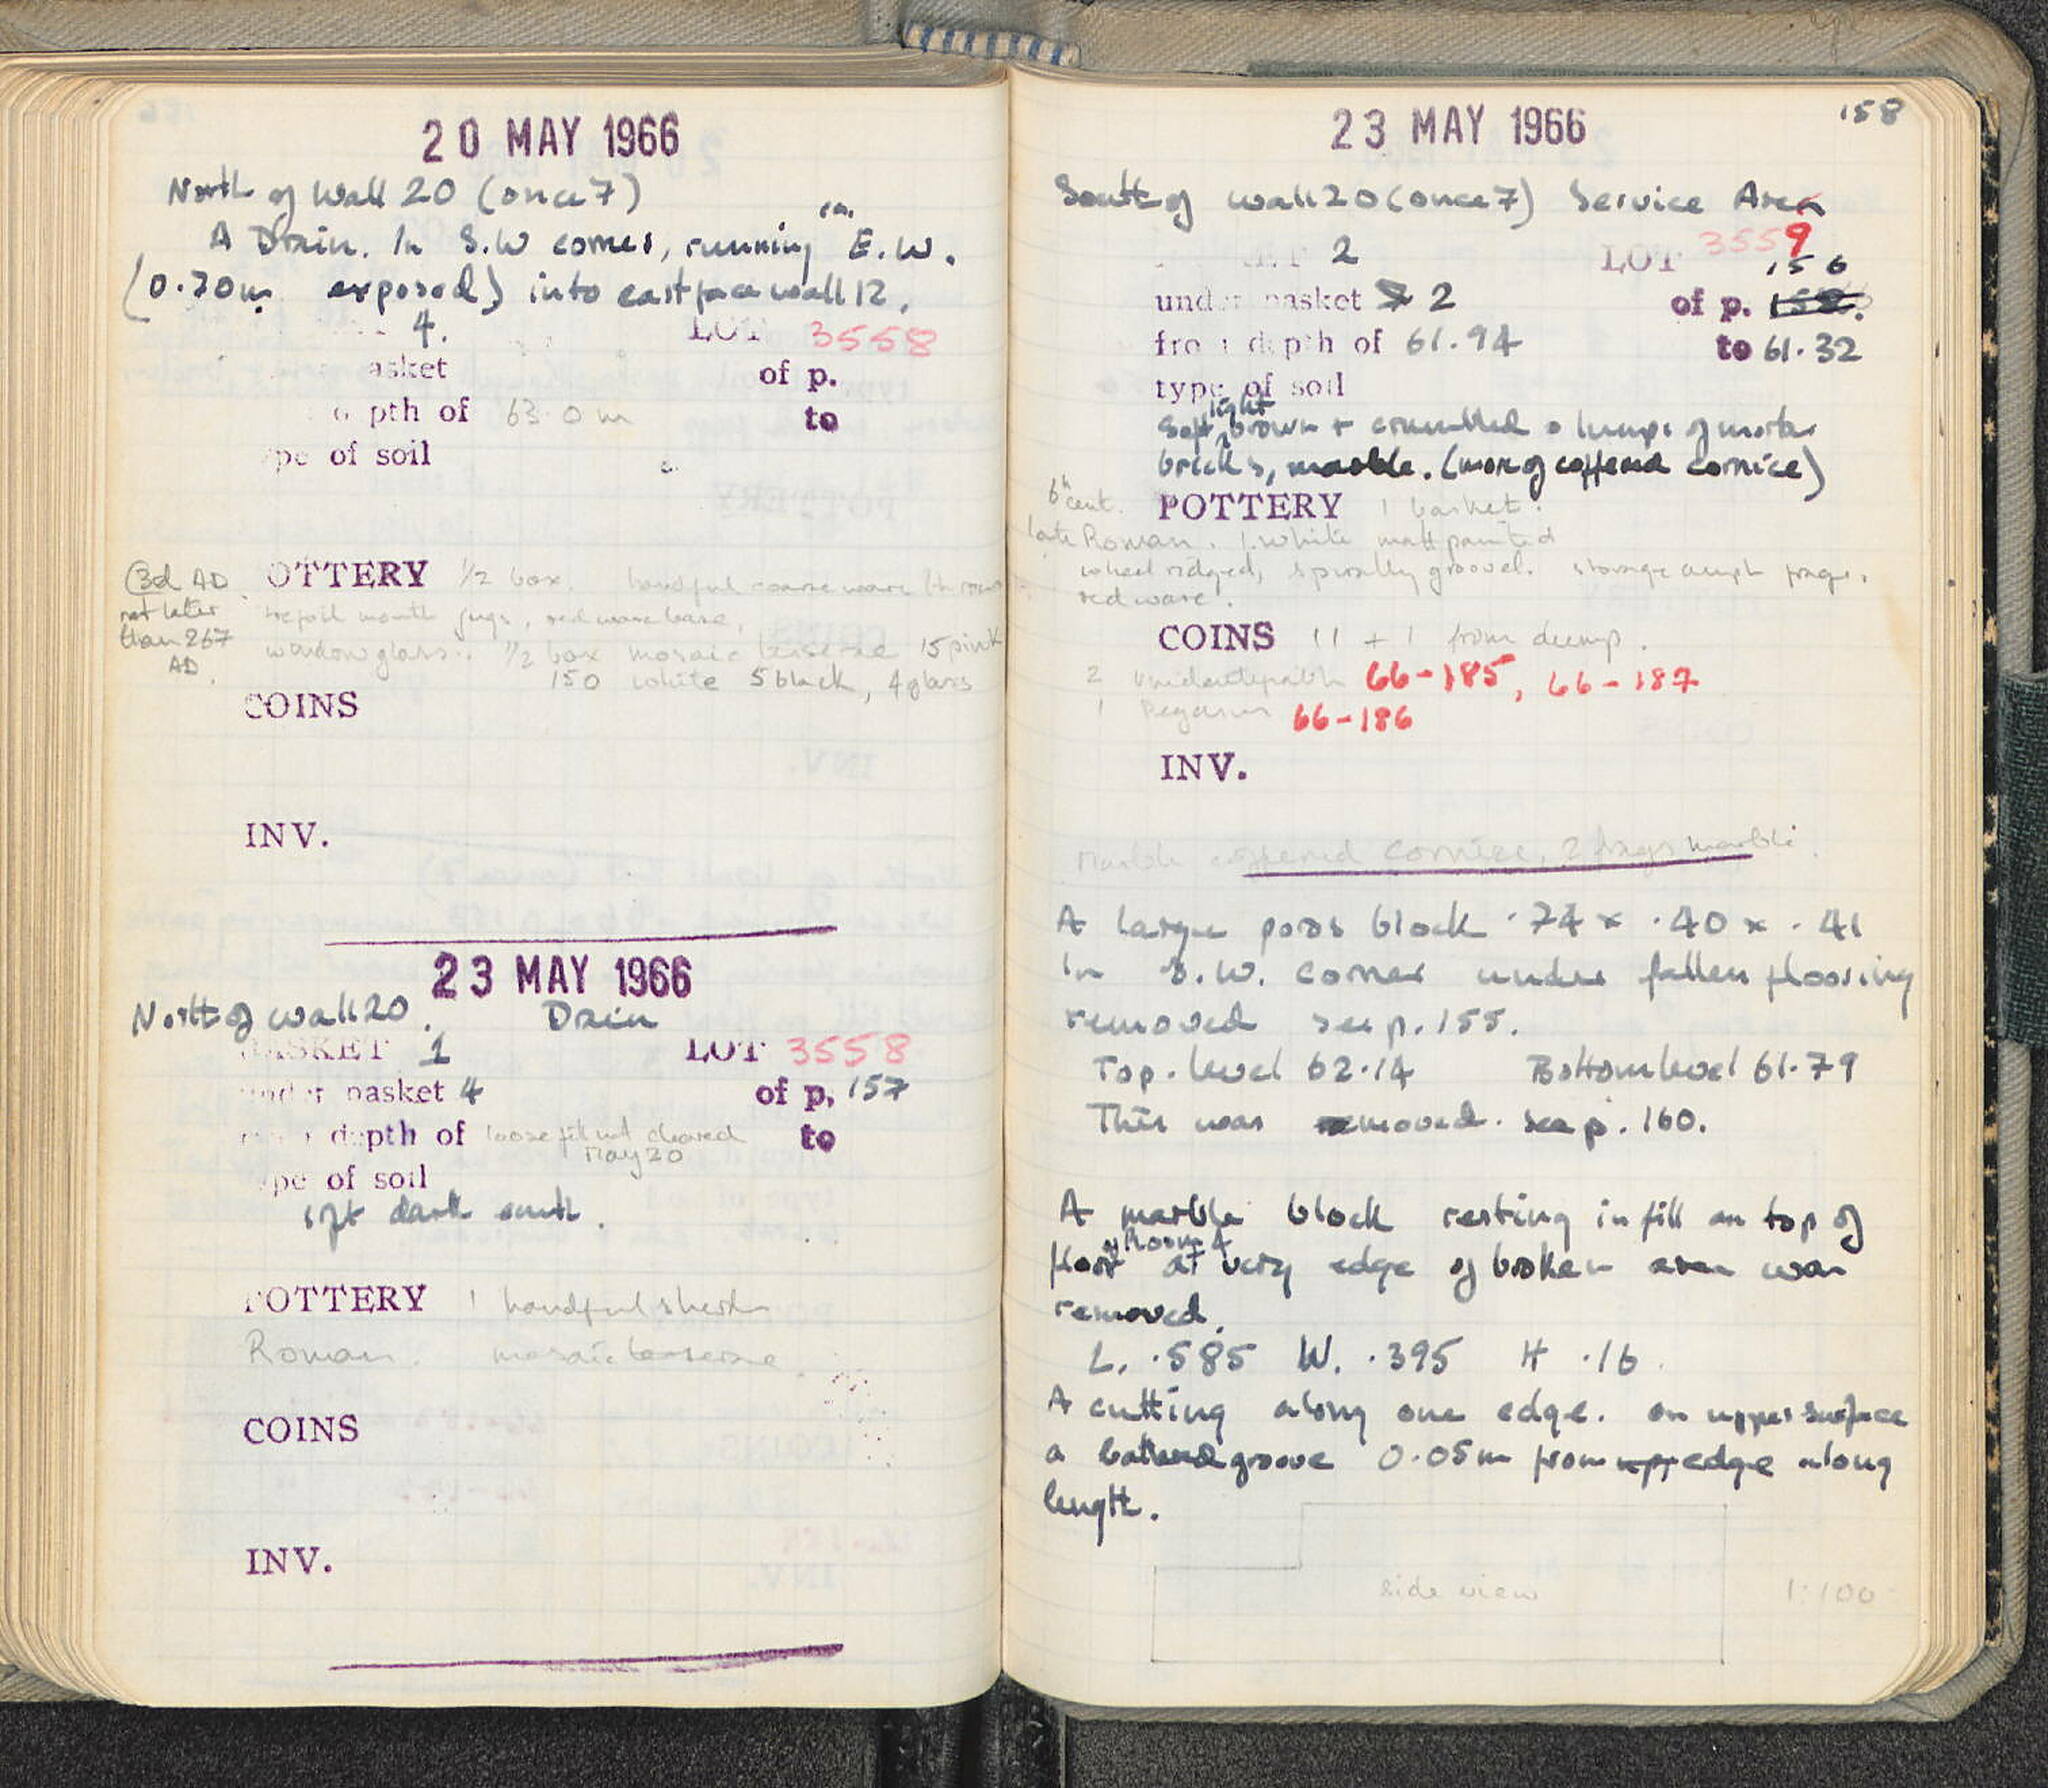 20 MAY 1966
North of Wall 20 (once 7)
ca.
A Drain. In S.W corner, running E.W.
(0.70m exposed) into east face wall 12.
4. LOT 3558
asket of p.
pth of 63.0m to
ype of soil
3d AD
not later
than 267
AD.
OTTERY 1/2 box. handful coarse ware
trefoil mouth jugs, red ware base,
window glass. 1/2 box mosaic tesserae 15 pink
150 white 5 black, 4 glass
COINS
INV.
23 MAY 1966
North of wall 20. Drain
BASKET 1 LOT 3558
under basket 4 of p. 157
depth of loose fill not cleared to
May 20
ype of soil
soft dark earth.
POTTERY 1 handful sherds
Roman. mosaic tesserae
COINS
INV.
158
23 MAY 1966
South of wall 20 (once 7) Service Area
ET 2 LOT 3559
156
under basket 2 of p. 158.
from depth of 61.94 to 61.32
type of soil
light
Soft brown + crumbled + lumps of mortar
bricks, marble. (more of coffered cornice)
6th cent.
POTTERY 1 basket.
late Roman. 1 white matt painted
wheel ridged, spirally grooved. storage amph frags.
red ware.
COINS 11 + 1 from dump.
2 unidentifiable 66-185, 66-187
1 Pegasus 66-186
INV.
Marble coffered cornice, 2 frags marble.
A large poros block .74 x .40 x .41
in S.W. corner under fallen flooring
removed see p. 155.
Top. level 62.14 Bottom level 61.79
This was removed. See p. 160.
A marble block resting in fill on top of
of Room 4
floor at very edge of broken area was
removed.
L. .585 W. .395 H .16.
A cutting along one edge. on upper surface
a battered groove 0.05m from edge along
length.
side view 1:100